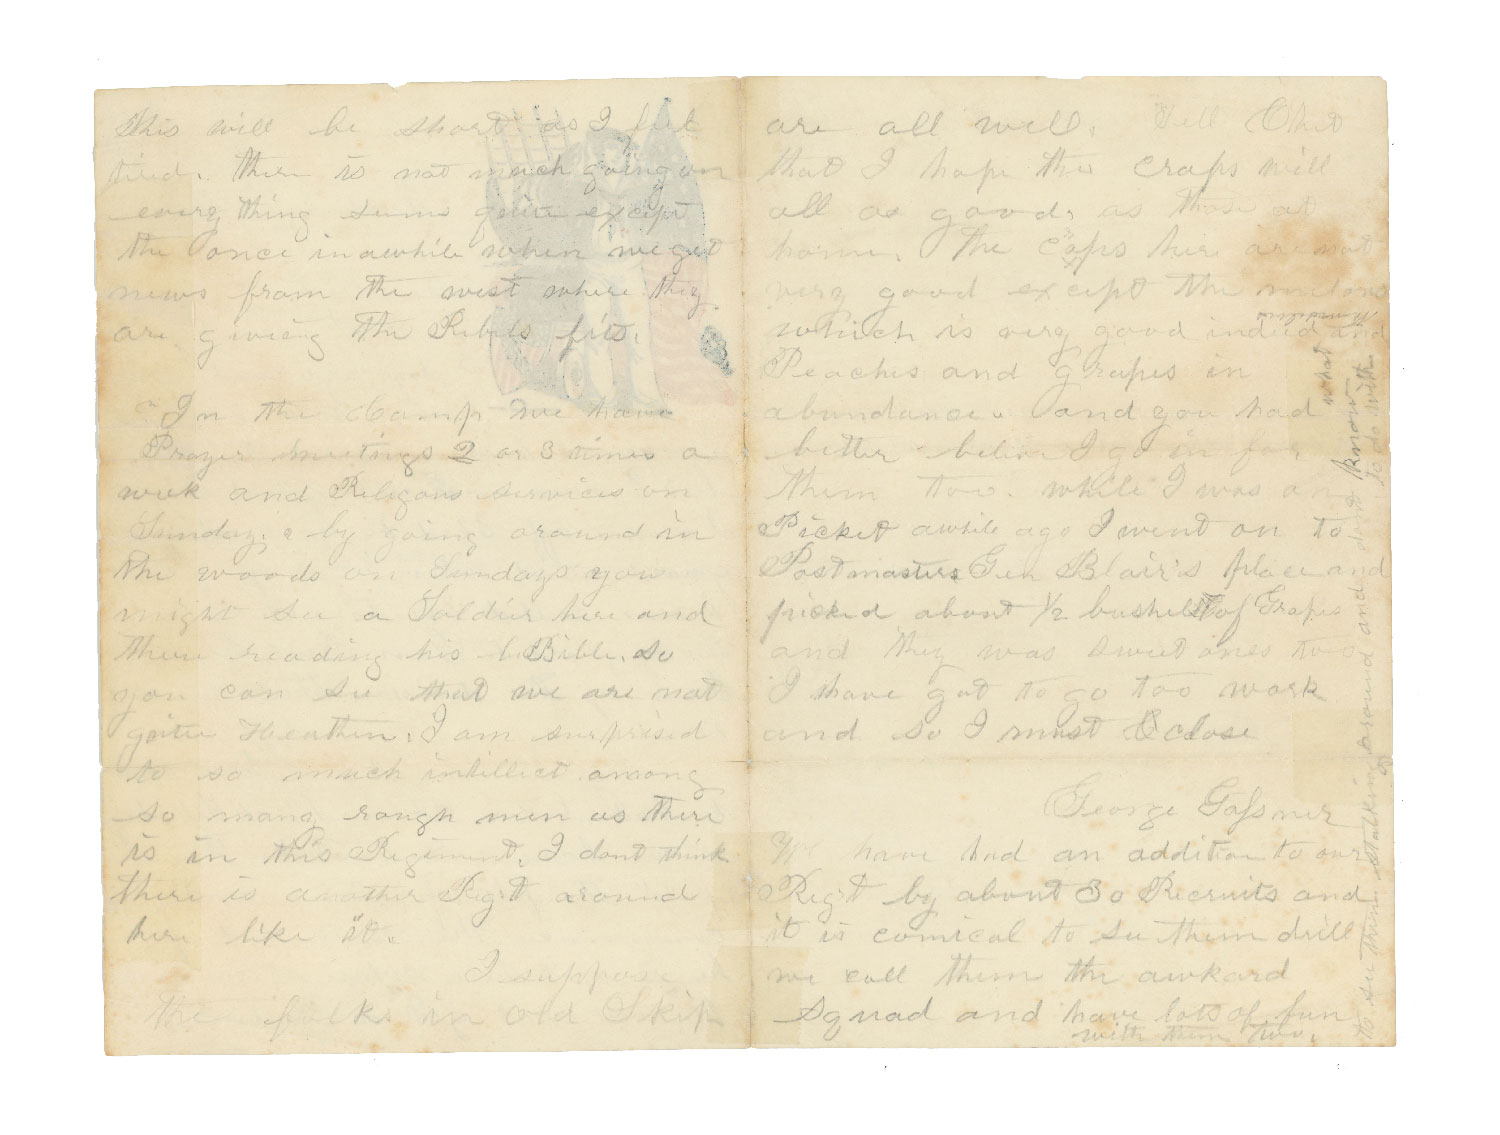 This will be short as I feel
tired. there is not much going on
every thing seems quite except
the once in awhile when we get
news from the west where they
are giveing the Rebels fits.
In the Camp we have
Prayer meetings 2 or 3 times a
week and Religous services on
Sunday. & by going around in
the woods on Sundays you
might see a Soldier here and
there reading his Bible. So
you can see that we are not
quite Heathen. I am surprised
to so much intellect among
so many rough men as there
is in this Regiment. I dont think
there is another Regt around
here like it.
I suppose
the folks in old Skip
are all well. Tell Chet
that I hope the craps will
all as good, as those at
home. The craps here are not
very good except the melons
which is very good indeed and
Peaches and Grapes in
abundance. and you had
better believe I go in for
them too. while I was on
Picket awhile ago I went on to
Postmasters Gen Blair's place and
picked about 1/2 bushel of Grapes
and they was sweet ones too
I have got to go too work
and so I must close
George Gassner
We have had an addition to our
Regt by about 30 Recruits and
it is comical to see them drill
we call them the awkard
Squad and have lots of fun
with them too.
to see them stalking around and dont know what
to do with